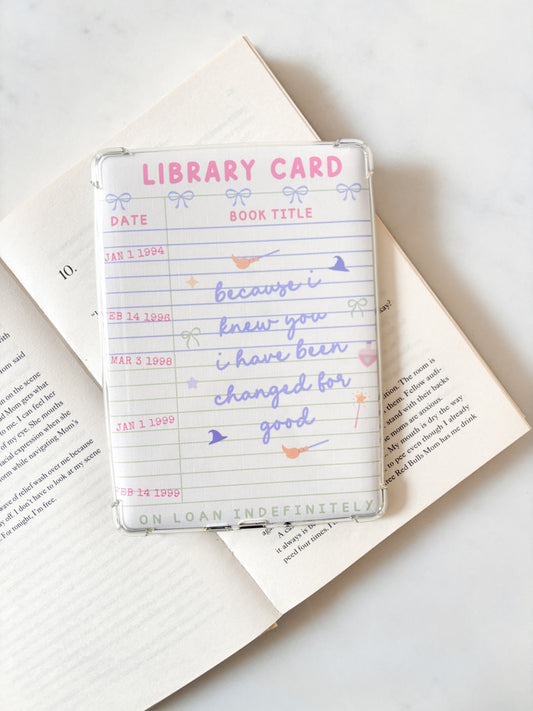 LIBRARY CARD
DATE
BOOK TITLE
JAN 1 1994
EB 14 1996
MAR 3 1998
JAN 1 1999
FEB 14 1999
because i
knew you
i have been
changed for
good
ON LOAN INDEFINITELY
10.
with
om said
n on the scene
d Mom gets what
to me. I can feel her
of my eye. She mouths
acial expression when she
orm while navigating Mom's
wave of relief wash over me because
ay off. I don't have to look at my scene
For tonight, I'm free.
kay?
The room is
them. Fellow audi-
stand with their backs
e moms are anxious.
My mouth is dry the way
to pee even though I already
ree Red Bulls Mom has me drink
A c
it always is b
peed four times,